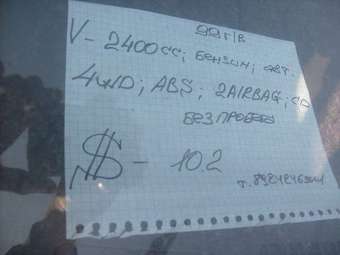 99 г/в
V - 2400cc; бензин; авт.
4WD; ABS; 2AIRBAG; CD
БЕЗ ПРОБЕГА
$ - 10.2
т.